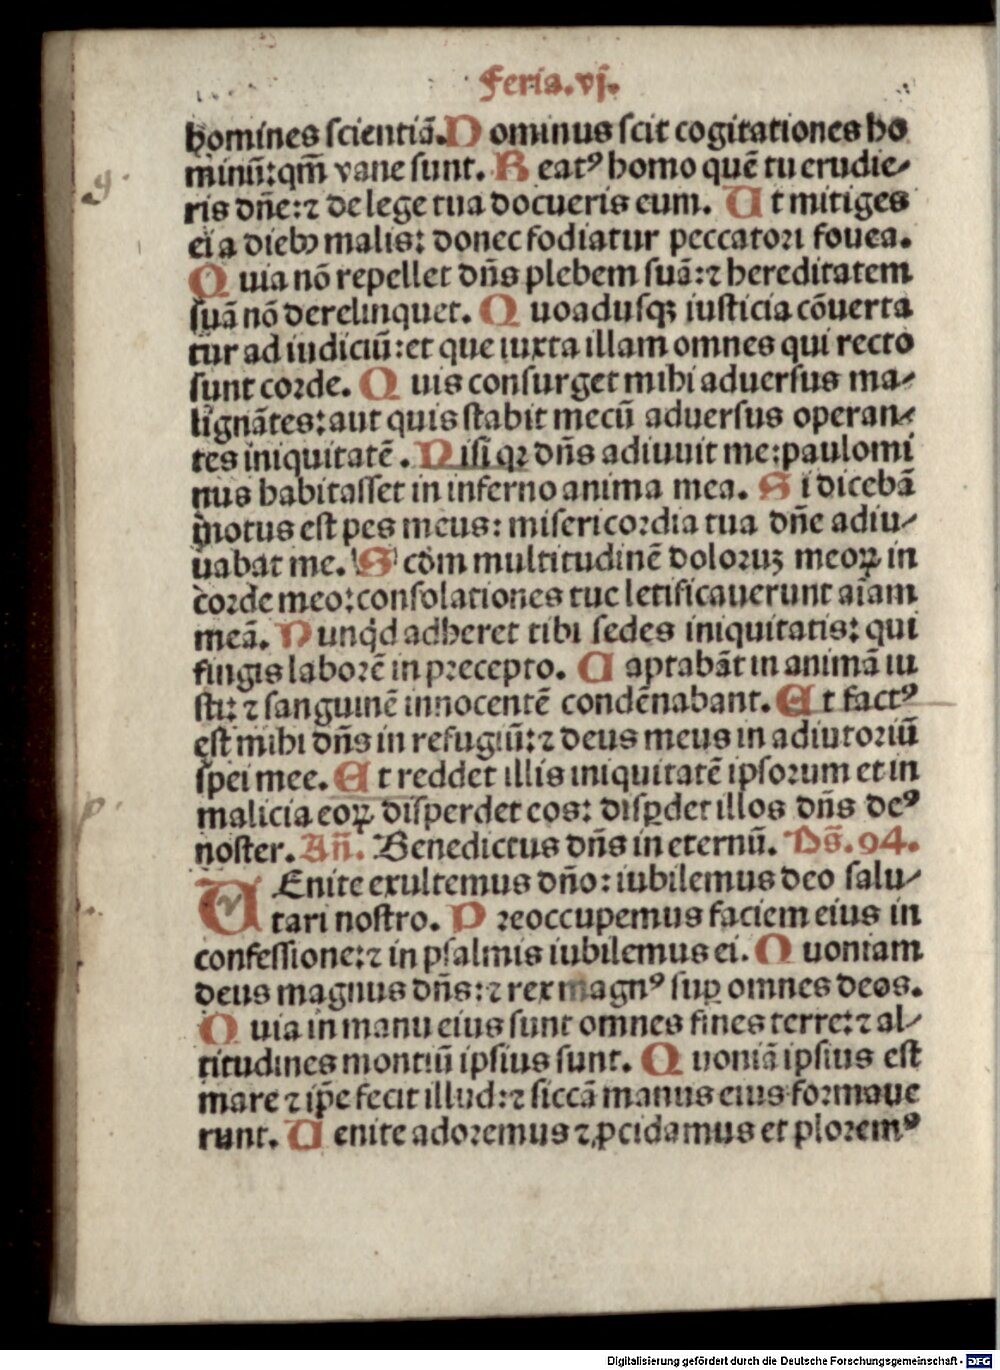 Feria.vj.
homines scientiā. Dominus scit cogitationes ho
minū:qm̄ vane sunt. Beatꝰ homo quē tu erudie-
ris dn̄e:⁊ de lege tua docueris eum. Ut mitiges
ei a diebꝫ malis: donec fodiatur peccatori fouea.
Quia nō repellet dn̄s plebem suā:⁊ hereditatem
suā nō derelinquet. Quoadusqꝫ iusticia cōuerta
tur ad iudiciū:et que iuxta illam omnes qui recto
sunt corde. Quis consurget mihi aduersus ma-
lignātes:aut quis stabit mecū aduersus operan-
tes iniquitatē. Nisi qꝛ dn̄s adiuuit me:paulomi
nus habitasset in inferno anima mea. Si dicebā
motus est pes meus: misericordia tua dn̄e adiu-
uabat me. Scd̄m multitudinē doloruꝫ meoꝝ in
corde meo:consolationes tue letificauerunt aīam
meā. Nunqd̄ adheret tibi sedes iniquitatis: qui
fingis laborē in precepto. Captabāt in animā iu
sti: ⁊ sanguinē innocentē condēnabant. Et factꝰ
est mihi dn̄s in refugiū:⁊ deus meus in adiutoriū
spei mee. Et reddet illis iniquitatē ipsorum et in
malicia eoꝝ disperdet eos: disꝑdet illos dn̄s deꝰ
noster. Añ. Benedictus dn̄s in eternū. Ps̄.94.
VEnite exultemus dn̄o: iubilemus deo salu-
tari nostro. Preoccupemus faciem eius in
confessione:⁊ in psalmis iubilemus ei. Quoniam
deus magnus dn̄s:⁊ rex magnꝰ suꝑ omnes deos.
Quia in manu eius sunt omnes fines terre:⁊ al-
titudines montiū ipsius sunt. Quoniā ipsius est
mare ⁊ ip̄e fecit illud:⁊ siccā manus eius formaue
runt. Uenite adoremus ⁊ ꝓcidamus et ploremꝰ
Digitalisierung gefördert durch die Deutsche Forschungsgemeinschaft - DFG